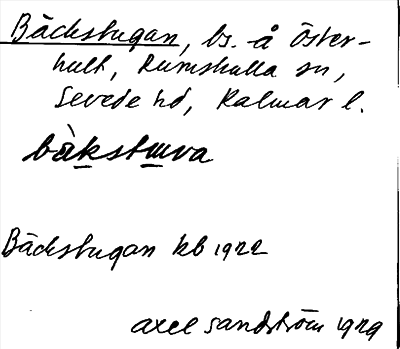 Bäckstugan, ls. å Öster-
hult, Rumskulla sn,
Sevede hd, Kalmar l.
bàkstuva
Bäckstugan kb 1922
Axel Sandström 1929